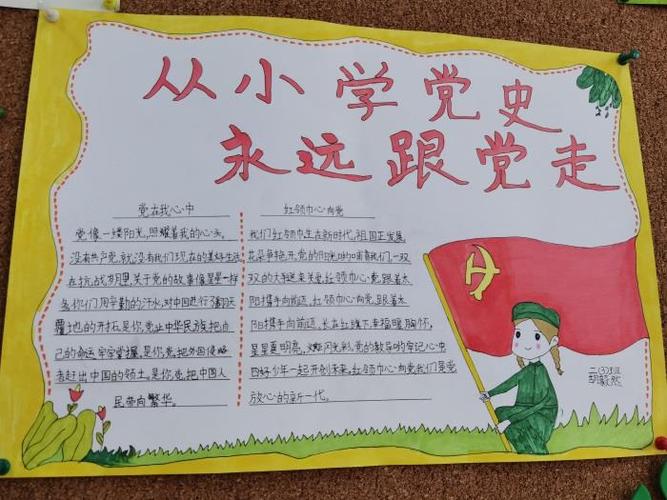 从小学党史
永远跟党走
党在我心中
党像一缕阳光,照耀着我的心头。
没有共产党,就没有我们现在的美好生活
在抗战明里,关于党的故事像星星一样
多你们用辛勤的汗水,对中国进行了翻天
覆地的开拓是你,党让中华民族把自
己的命运牢牢掌握,是你,党把外国侵略
者赶出中国的领土。是你,党把中国人
民带向繁华。
红领巾心向党
我们红领巾生在新时代,祖国正发展
花朵争艳开,党的阳光
双的大手关爱,红领巾心向党,跟着太
阳携手向前迈,红领巾心向党,跟着太
阳携手向前迈,长在红旗下,幸福暖胸怀,
星星更明亮,火炬闪光彩,党的教导哟牢记心中
四好少年一起开创未来,红领巾心向党我们是党
放心的新一代。
二(3)班
胡毅然